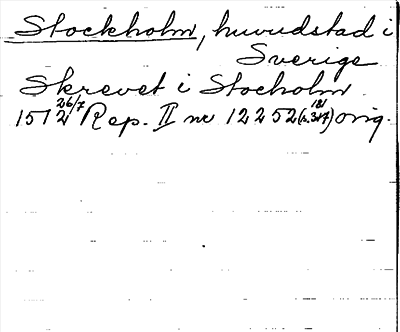 Stockholm, huvudstad i
Sverige
Skrevet i Stocholm
1512 26/7 Rep. II nr 12252 orig.